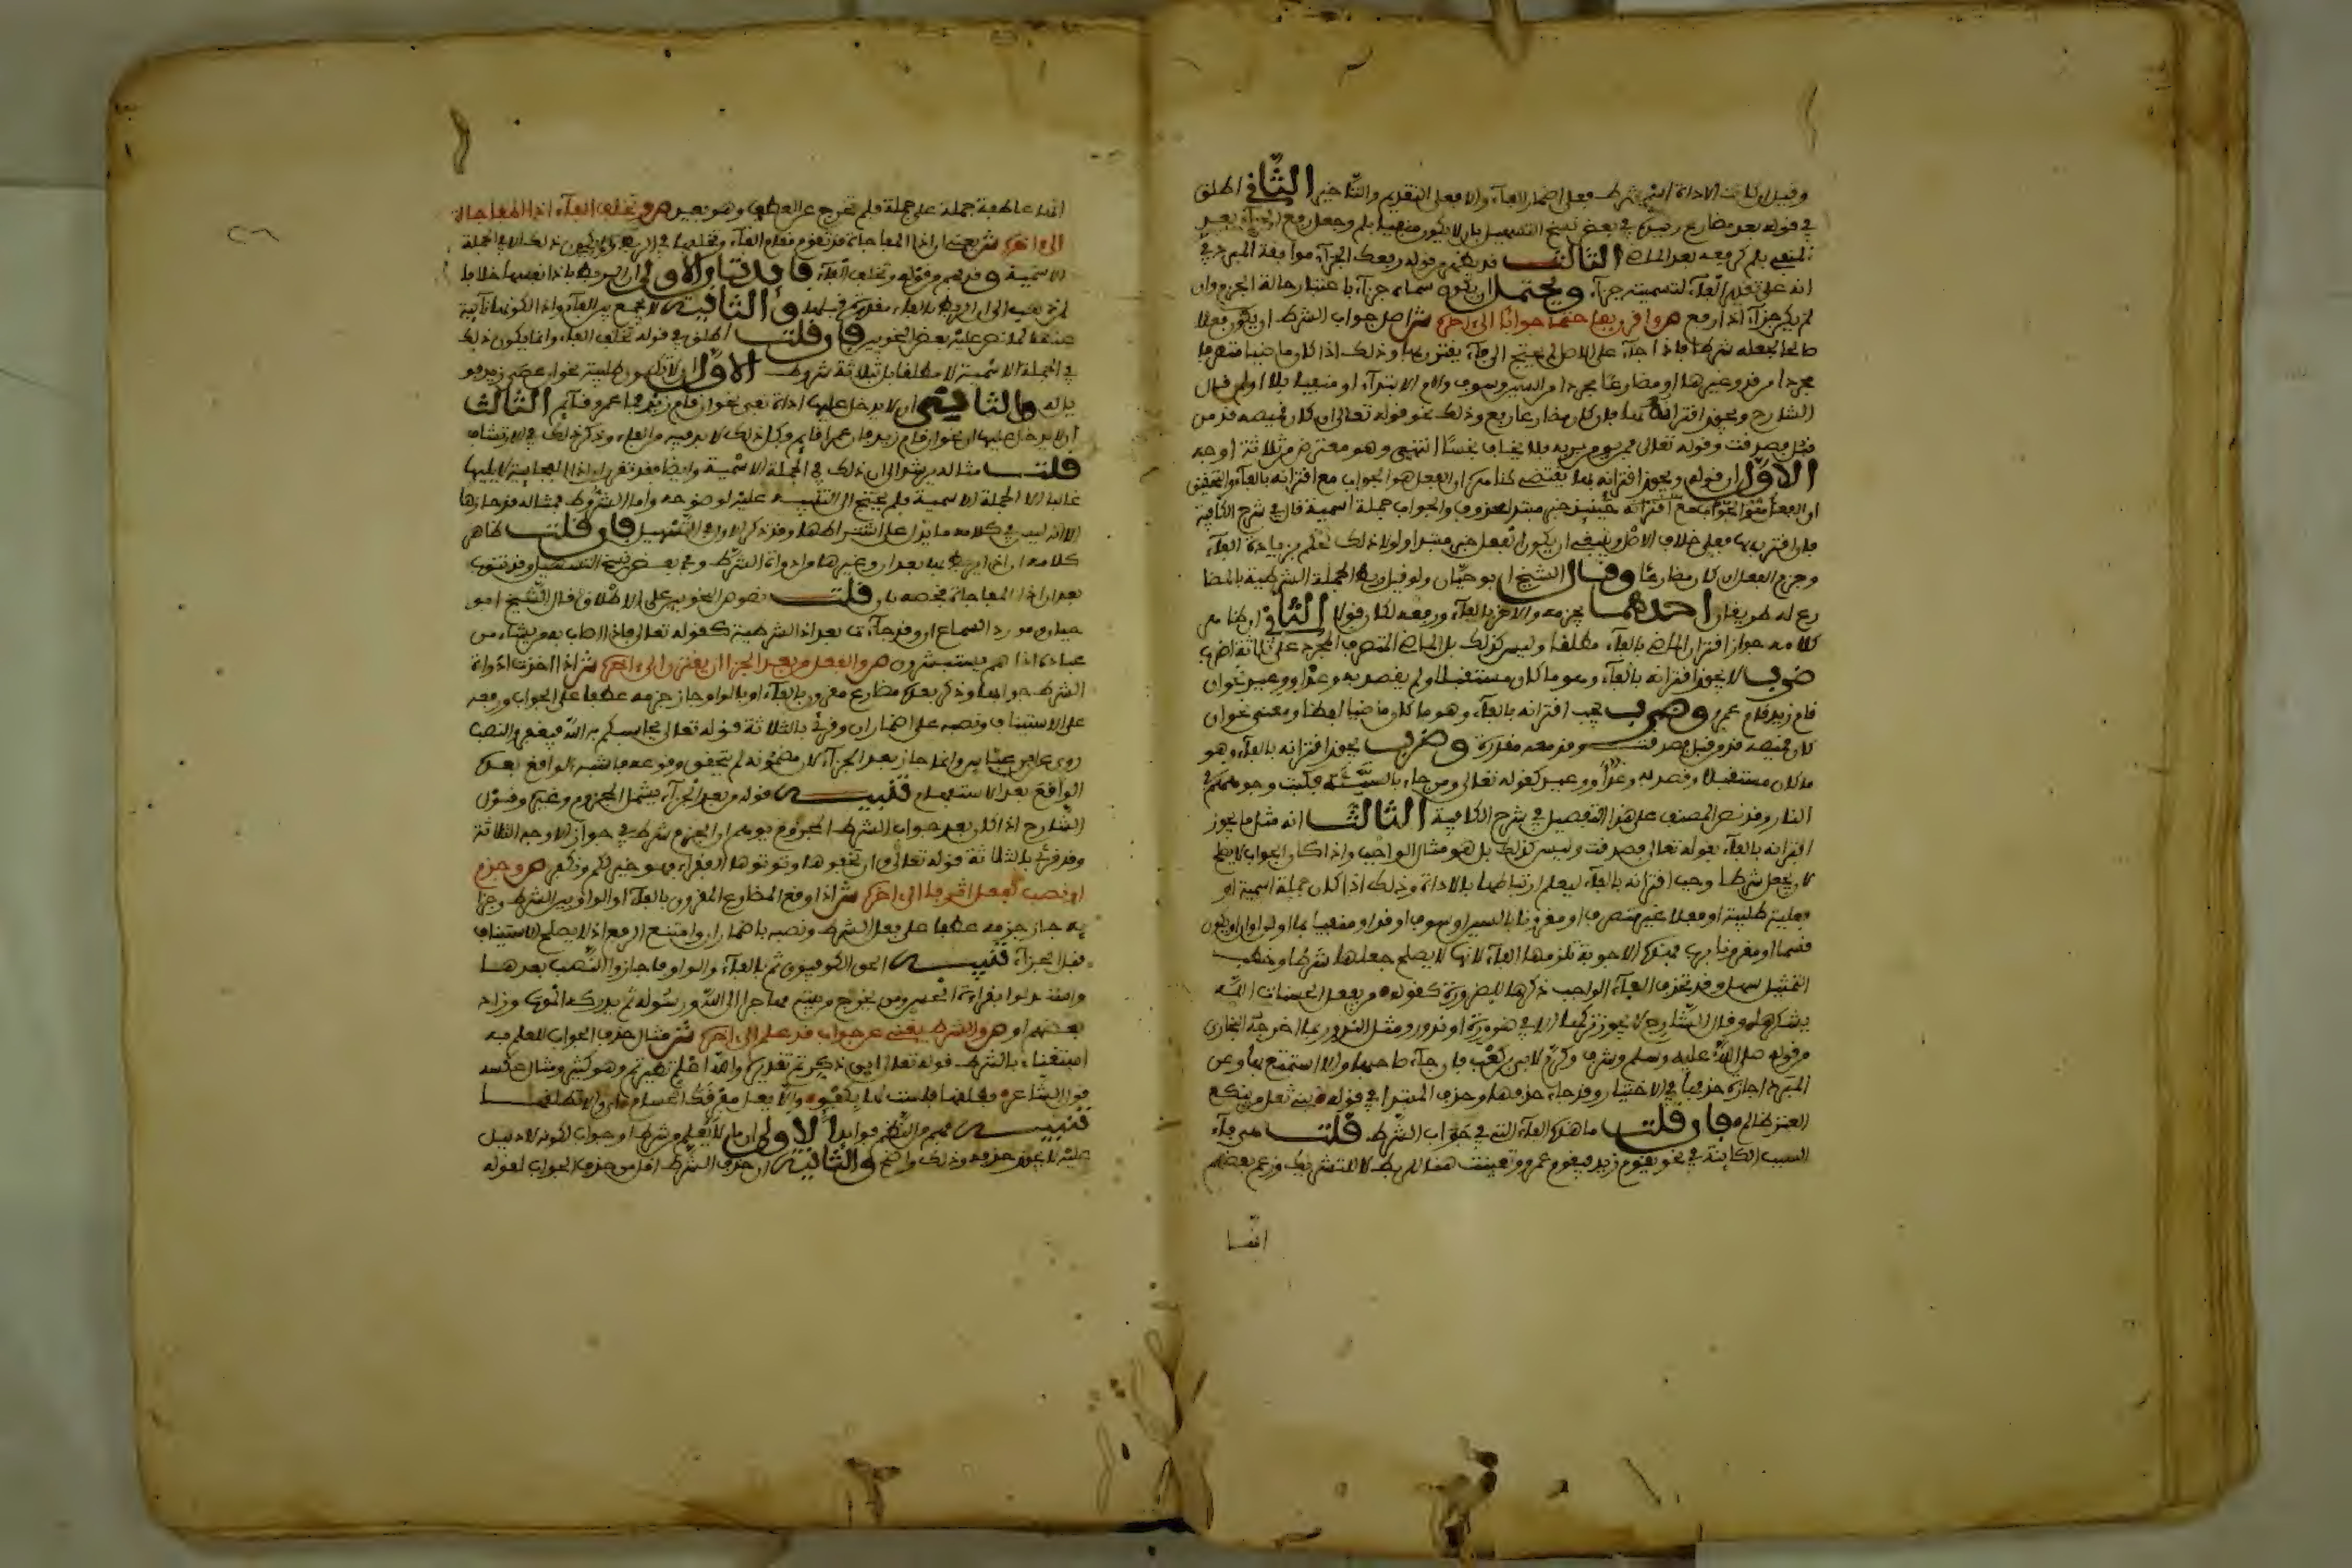 وقيل ان كانت الاداة اسم شرط فعلى اضمار الفاء والا فعلى التقديم والتاخير الثاني اطلق
في قوله بعد مضارع وقيده في بعض نسخ التسهيل بان لا يكون منفيا بلم وجعل رفع الجزاء بعد
المنفي بلم كرفعه بعد الماضي الثالث قد يفهم من قوله رفعك الجزاء موافقة المبرد في
انه على تقدير الفاء لتسميته جزاء ويحتمل ان يكون سماه جزاء باعتبار حالة الجزم وان
لم يكن جزاء اذا رفع ص واقرن بفا حتما جوابا الى اخره ش اصل جواب الشرط ان يكون فعلا
صالحا لجعله شرطا فاذا جاء على الاصل لم يحتج الى فاء يقترن بها وذلك اذا كان ماضيا متصرفا
مجردا من قد وغيرها او مضارعا مجردا او منفيا بلا او لم قال
الشارح ويجوز اقترانه بها فان كان مضارعا رفع وذلك نحو قوله تعالى ان كان قميصه قد من
قبل فصدقت وقوله تعالى فمن يومن بربه فلا يخاف بخسا انتهى وهو معترض من ثلاثة اوجه
الاول ان قوله ويجوز اقترانه بها يقتضي ظاهره ان الفعل هو الجواب مع اقترانه بالفاء والتحقيق
ان الفعل حينئذ خبر مبتدا محذوف والجواب جملة اسمية قال في شرح الكافية
فان اقترن بها فعلى خلاف الاصل وينبغي ان يكون الفعل خبر مبتدا ولولا ذلك لحكم بزيادة الفاء
وجزم الفعل ان كان مضارعا وقال الشيخ ابو حيان ولو قيل ربط الجملة الشرطية بالمضا
رع له طريقان احدهما بجزمه والاخر بالفاء ورفعه لكان قولا الثاني ان ظاهر
كلامه جواز اقتران الماضي بالفاء مطلقا وليس كذلك بل الماضي المتصرف المجرد على ثلاثة اضرب
ضرب لا يجوز اقترانه بالفاء وهو ما كان مستقبلا ولم يقصد به وعد او وعيد نحو ان
قام زيد قام عمرو وضرب يجب اقترانه بالفاء وهو ما كان ماضيا لفظا ومعنى نحو ان
كان قميصه قد من قبل فصدقت وقد معه مقدرة وضرب يجوز اقترانه بالفاء وهو
ما كان مستقبلا وقصد به وعد او وعيد كقوله تعالى ومن جاء بالسيئة فكبت وجوههم في
النار وقد نص المصنف على هذا التفصيل في شرح الكافية الثالث انه مثل ما يجوز
اقترانه بالفاء بقوله تعالى فصدقت وليس كذلك بل هو مثال الواجب واذا كان الجواب لا يصلح
لان يجعل شرطا وجب اقترانه بالفاء ليعلم ارتباطها بالاداة وذلك اذا كان جملة اسمية او
فعلية طلبية او فعلا غير متصرف او مقرونا بالسين او سوف او قد او منفيا بما او لن او ان او يكون
قسما او مقرونا برب فهذه الاجوبة تلزمها الفاء لانها لا يصلح جعلها شرطا وخطب
التمثيل سهل وقد تحذف الفاء الواجب ذكرها للضرورة كقوله من يفعل الحسنات الله
يشكرها وقال الشارح لا يجوز تركها الا في ضرورة او ندور ومثل الندور بما اخرجه البخاري
من قوله صلى الله عليه وسلم وشرف وكرم لابي بن كعب فان جاء صاحبها والا استمتع بها وعن
المبرد اجازة حذفها في الاختيار وقد جاء حذفها وحذف المبتدا في قوله بني ثعل من ينكع
العنز ظالم فان قلت ما هذه الفاء التي في جواب الشرط قلت هي فاء
السبب الكائنة في نحو يقوم زيد فيقوم عمرو وتعينت هنا للربط لا للتشريك وزعم بعضهم
انها
انها عاطفة جملة على جملة فلم تخرج عن العطف وهو بعيد ص وتخلف الفاء اذا المفاجاة
الى اخره ش يعني ان اذا المفاجاة قد تقوم مقام الفاء وتخلفها في الربط ولا يكون ذلك الا في الجملة
الاسمية وقد فهم من قوله وتخلف الفاء فايدتان الاولى ان الربط باذا نفسها خلافا
لمن ذهب الى ان الربط بالفاء مقدرة قبلها والثانية لا يجمع بين الفاء واذا لكونها نائبة
عنها كما نص عليه بعض النحويين فان قلت اطلق في قوله تخلف الفاء وانما يكون ذلك
في الجملة الاسمية لا مطلقا بل بثلاثة شروط الاول ان لا تكون طلبية نحو ان عصى زيد فو
يل له والثاني ان لا يدخل عليها اداة نفي نحو ان قام زيد فما عمرو قايم الثالث
ان لا يدخل عليها ان نحو ان قام زيد فان عمرا قايم وكل ذلك لا بد فيه من الفاء وذكر ذلك في الارتشاف
قلت مثاله يرشد الى ان ذلك في الجملة الاسمية وايضا فقد تقرر ان اذا الفجائية لا يليها
غالبا الا الجملة الاسمية فلم يحتج الى التنبيه عليه لوضوحه واما الشروط فمثاله قد حازها
الا انه ليس في كلامه ما يدل على اشتراطها وقد ذكر الاول في التسهيل فان قلت ظاهر
كلامه ان اذا يربط بها بعد ان وغيرها من ادوات الشرط وفي بعض نسخ التسهيل وقد تنوب
بعد ان اذا المفاجاة فخصه بان قلت نصوص النحويين على الاطلاق قال الشيخ ابو
حيان ومورد السماع ان وقد جاءت بعد اذا الشرطية كقوله تعالى فاذا اصاب به من يشاء من
عباده اذا هم يستبشرون ص والفعل من بعد الجزا ان يقترن الى اخره ش اذا اخذت ادوات
الشرط جوابها وذكر بعده مضارع مقرون بالفاء او بالواو جاز جزمه عطفا على الجواب ورفعه
على الاستيناف ونصبه على اضمار ان وقرئ بالثلاثة قوله تعالى يحاسبكم به الله فيغفر والنصب
روي عن ابن عباس وانما جاز بعد الجزاء لان مضمونه لم يتحقق وقوعه فاشبه الواقع بعده
الواقع بعد الاستفهام تنبيه قوله من بعد الجزاء يشمل المجزوم وغيره وقول
الشارح اذا كان بعد جواب الشرط المجزوم يوهم ان الجزم شرط في جواز الاوجه الثلاثة
وقد قرئ بالثلاثة قوله تعالى وان تخفوها وتوتوها الفقراء فهو خير لكم ونكفر ص وجزم
او نصب لفعل اثر فا الى اخره ش اذا وقع المضارع المقرون بالفاء او الواو بين الشرط وجزا
يه جاز جزمه عطفا على فعل الشرط ونصبه باضمار ان وامتنع الرفع اذ لا يصلح الاستيناف
قبل الجزاء تنبيه الحق الكوفيون ثم بالفاء والواو فاجازوا النصب بعدها
واستدلوا بقراءة الحسن ومن يخرج من بيته مهاجرا الى الله ورسوله ثم يدركه الموت وزاد
بعضهم او ص والشرط يغني عن جواب قد علم الى اخره ش مثال حذف الجواب للعلم به
استغناء بالشرط قوله تعالى اين ذكرتم تقديره والله اعلم تطيرتم وهو كثير ومثال عكسه
قول الشاعر فطلقها فلست لها بكفو والا يعل مفرقك الحسام اي والا تطلقها
تنبيه فهم من النظم فوايد الاولى ان ما لا يعلم من شرط او جواب لكونه لا دليل
عليه لا يجوز حذفه وذلك واضح والثانية ان حذف الشرط اقل من حذف الجواب لقوله